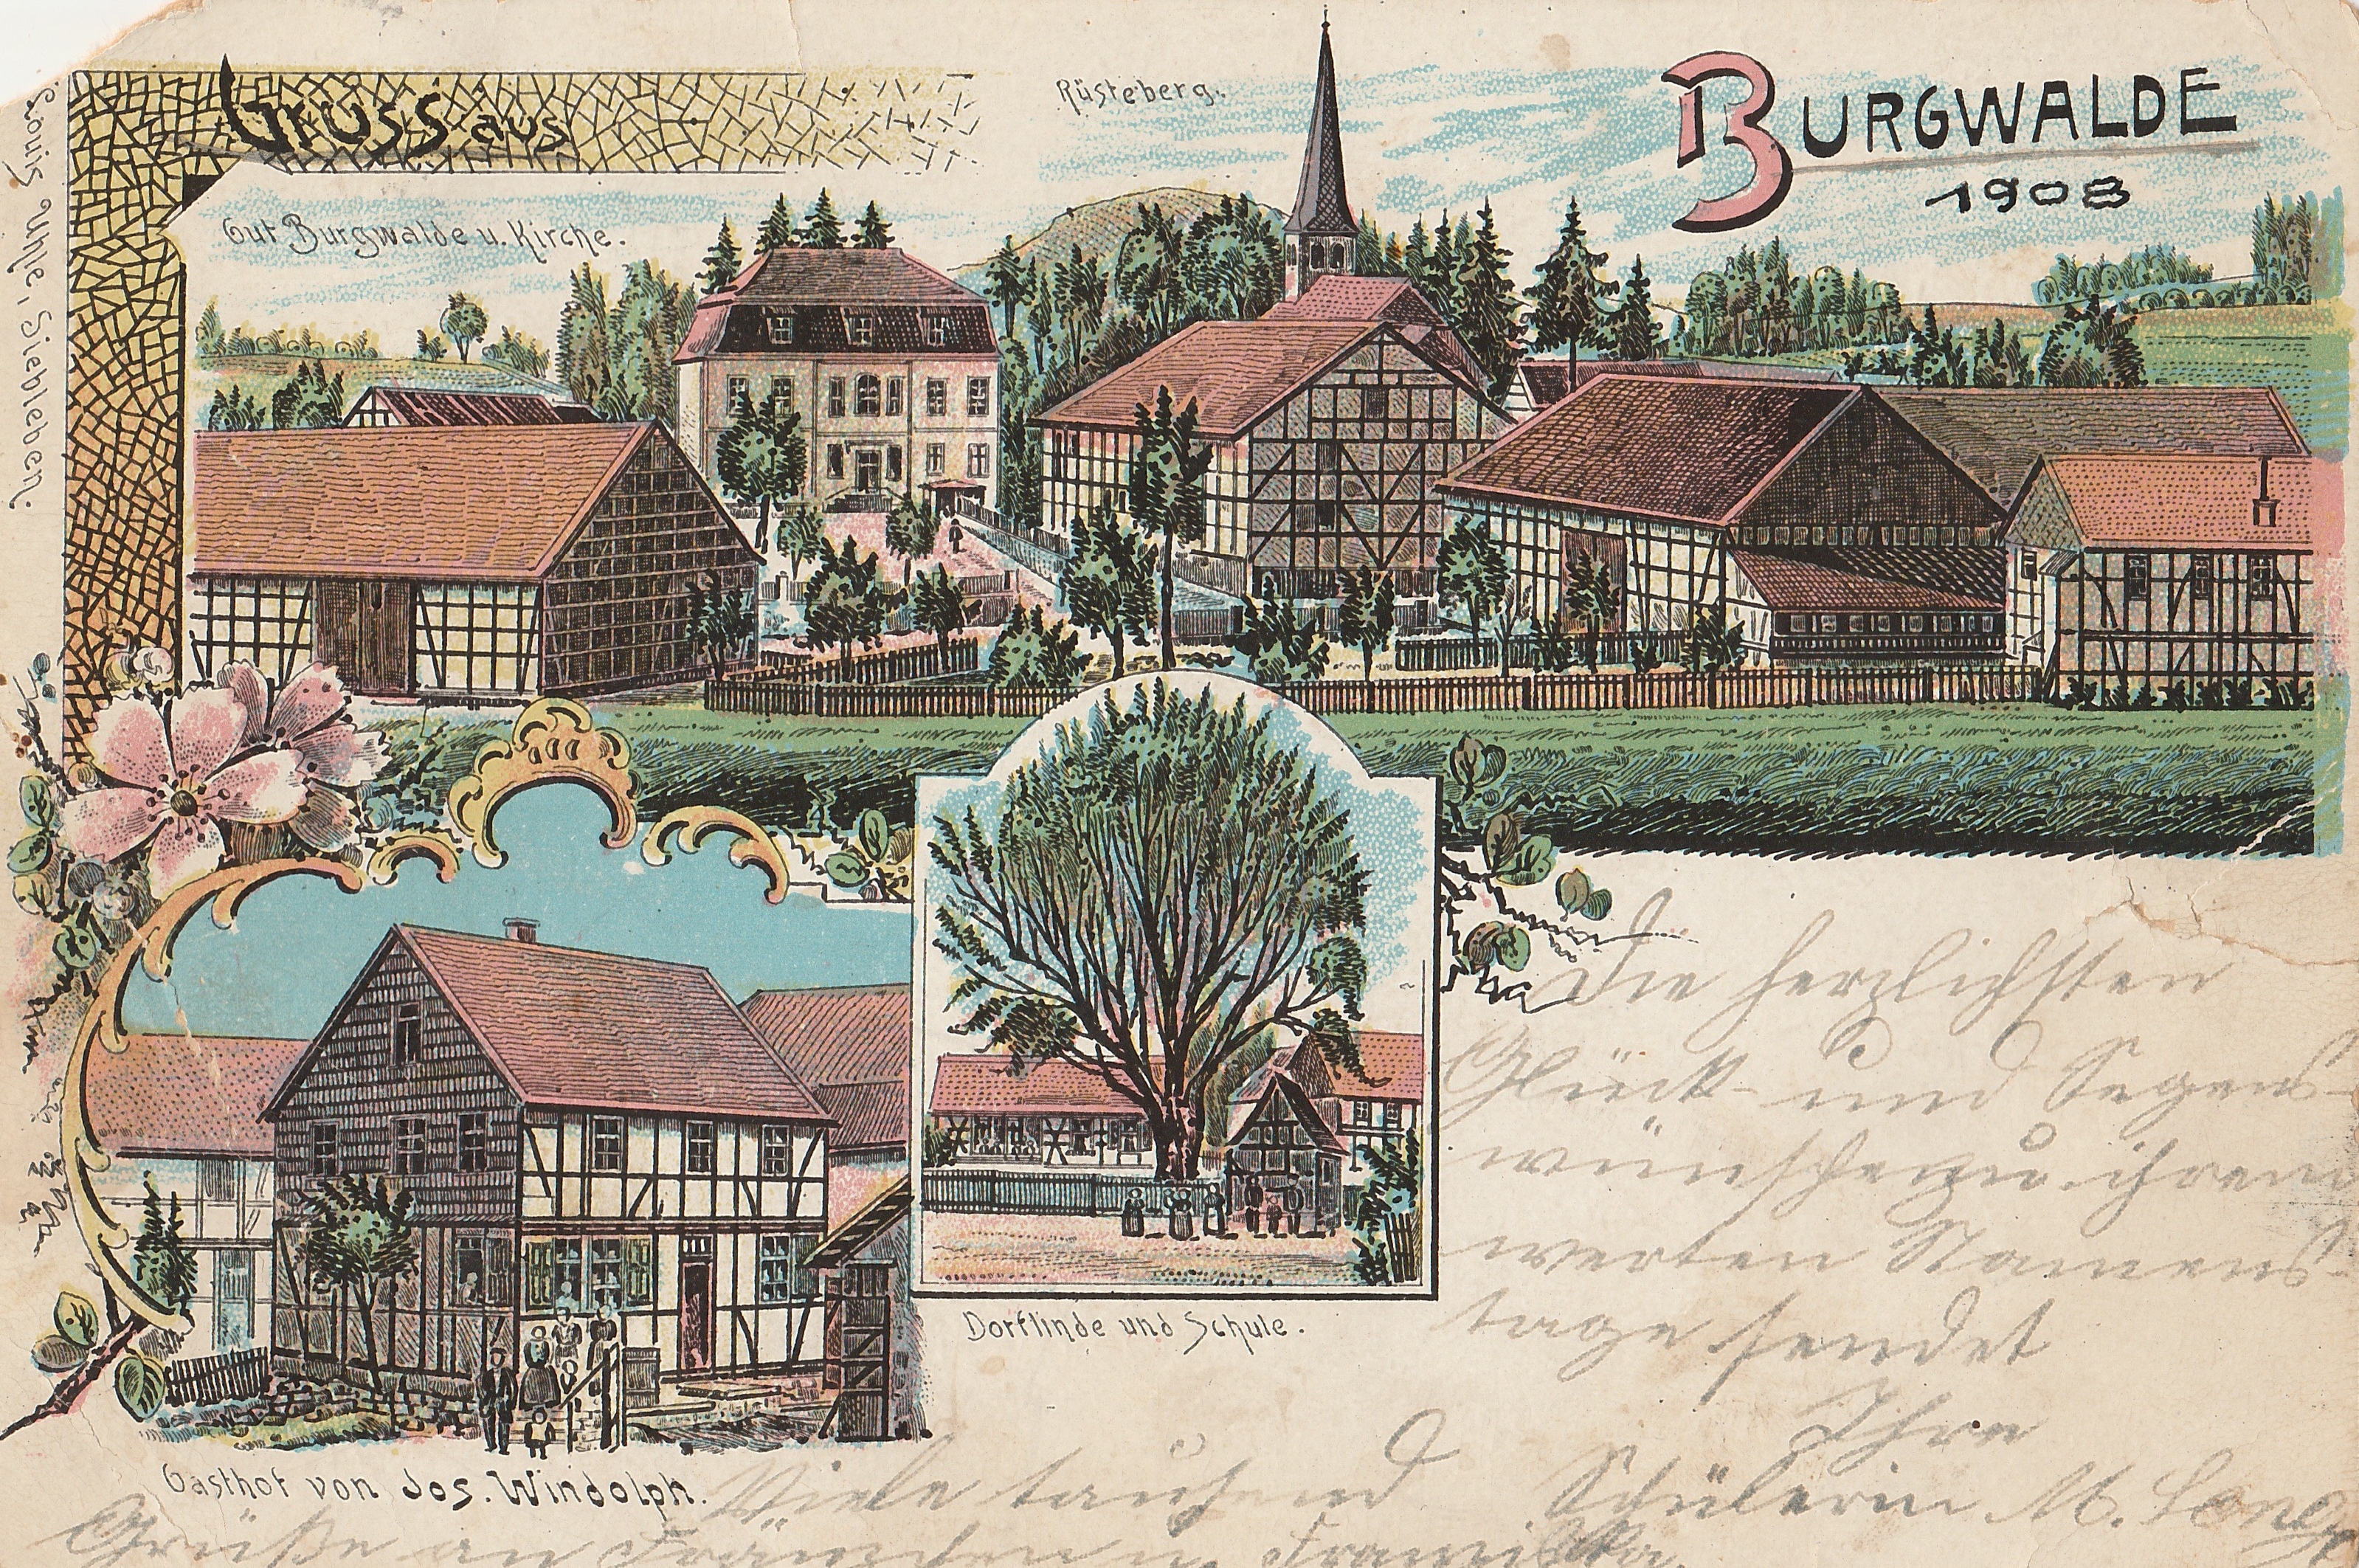 Gruss aus
BURGWALDE
1908
Rüsteberg.
Gut Burgwalde u. Kirche.
Louis Uhle, Siebleben.
Dorflinde und Schule.
Gasthof von Jos. Windolph.
Die herzlichsten
Glück- und Segens-
wünsche zu ihrem
werten Namens-
tage sendet
Ihre
Schülerin M.
Viele tausend
Grüße an Fränzchen u.